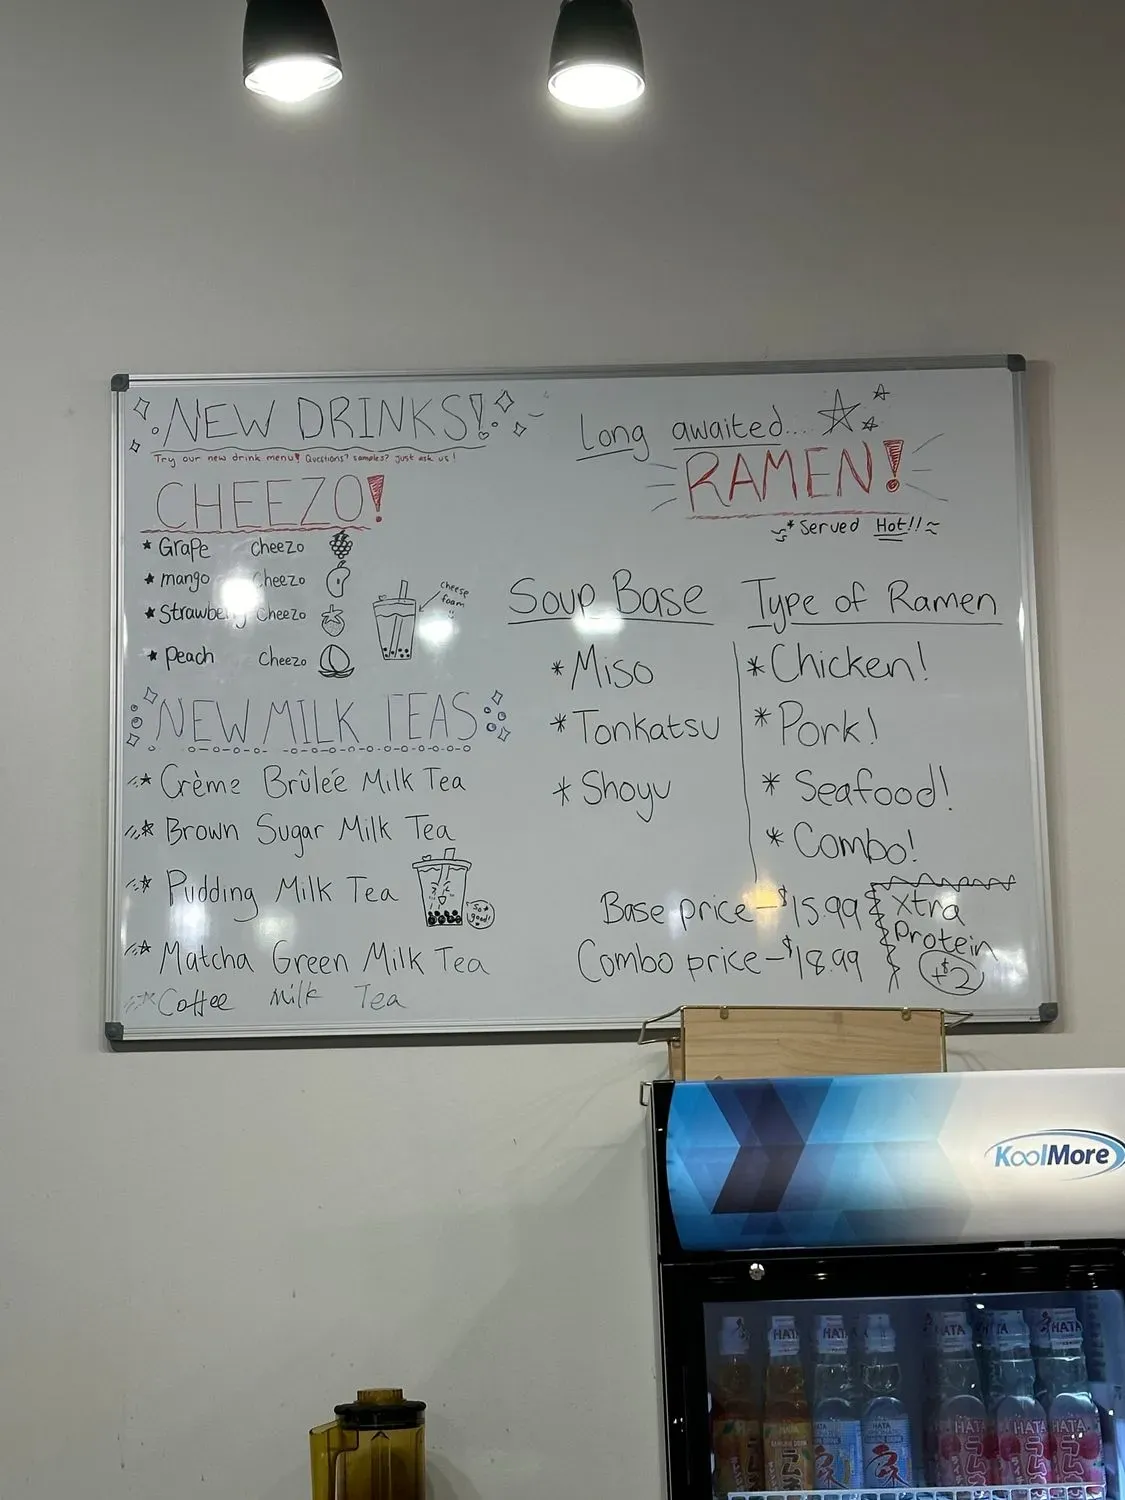 NEW DRINKS!
Try our new drink menu! Questions? samples? just ask us!
CHEEZO!
* Grape Cheezo
* mango Cheezo
* Strawberry Cheezo
* Peach Cheezo
cheese
foam
NEW MILK TEAS
* Crème Brûleé Milk Tea
* Brown Sugar Milk Tea
* Pudding Milk Tea
So
good!
* Matcha Green Milk Tea
* Coffee Milk Tea
Long awaited...
RAMEN!
*Served Hot!!
Soup Base
* Miso
* Tonkatsu
* Shoyu
Type of Ramen
* Chicken!
* Pork!
* Seafood!
* Combo!
Base price - $15.99
Combo price - $18.99
Xtra
Protein
+$2
KoolMore
HATA HATA HATA HATA HATA
HATA HATA HATA
ラムネ ラムネ ラムネ